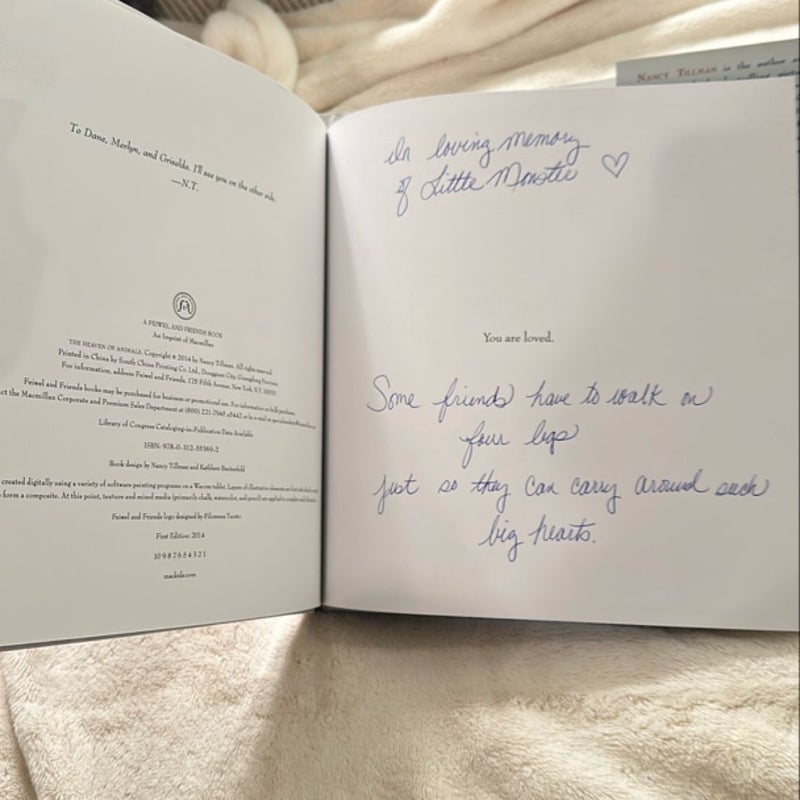 To Dane, Merlyn, and Grizelda. I'll see you on the other side.
—N.T.
A FEIWEL AND FRIENDS BOOK
An Imprint of Macmillan
THE HEAVEN OF ANIMALS. Copyright © 2014 by Nancy Tillman. All rights reserved.
Printed in China by South China Printing Co. Ltd., Dongguan City, Guangdong Province.
For information, address Feiwel and Friends, 175 Fifth Avenue, New York, N.Y. 10010.
Feiwel and Friends books may be purchased for business or promotional use. For information on bulk purchases,
ct the Macmillan Corporate and Premium Sales Department at (800) 221-7945 x5442 or by e-mail at
Library of Congress Cataloging-in-Publication Data Available
ISBN: 978-0-312-55369-2
Book design by Nancy Tillman and Kathleen Breitenfeld
created digitally using a variety of software painting programs on a Wacom tablet. Layers of illustrative elements are first
form a composite. At this point, texture and mixed media (primarily chalk, watercolor, and pencil) are applied to complete
Feiwel and Friends logo designed by Filomena Tuosto
First Edition: 2014
10 9 8 7 6 5 4 3 2 1
mackids.com
NANCY TILLMAN is the author
In loving memory
of Little Monstie ♡
You are loved.
Some friends have to walk on
four legs
just so they can carry around such
big hearts.